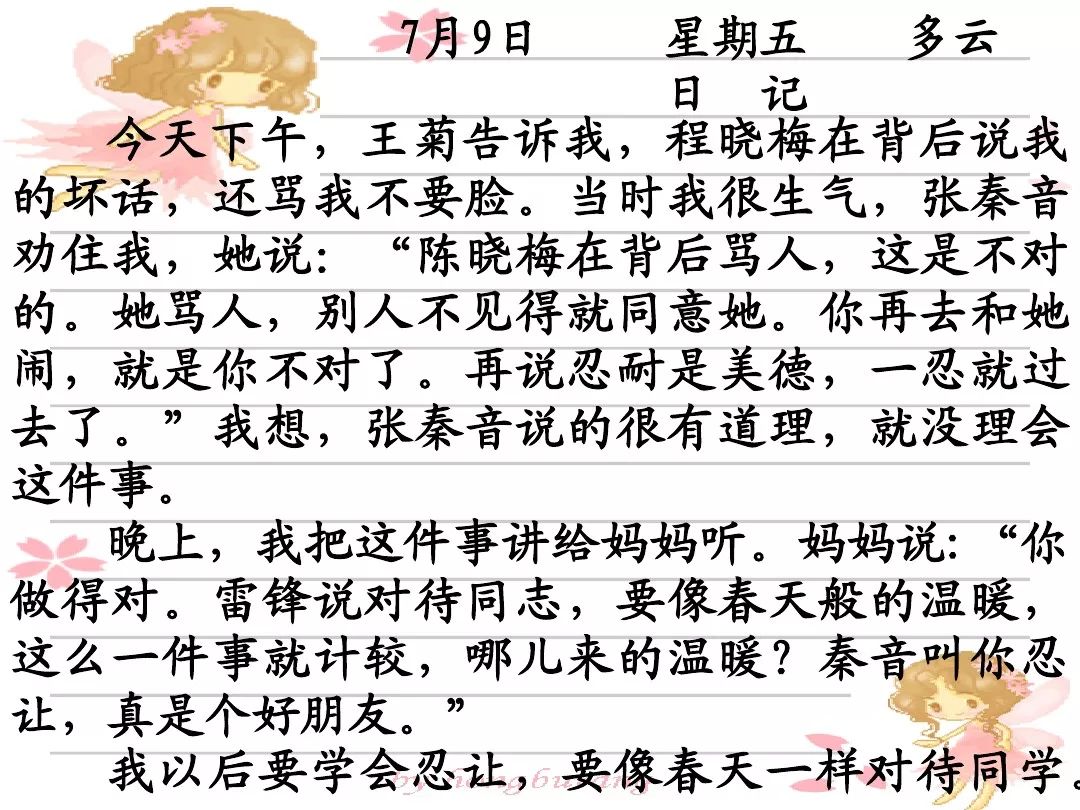 7月9日 星期五 多云
日 记
今天下午，王菊告诉我，程晓梅在背后说我
的坏话，还骂我不要脸。当时我很生气，张秦音
劝住我，她说：“陈晓梅在背后骂人，这是不对
的。她骂人，别人不见得就同意她。你再去和她
闹，就是你不对了。再说忍耐是美德，一忍就过
去了。”我想，张秦音说的很有道理，就没理会
这件事。
晚上，我把这件事讲给妈妈听。妈妈说：“你
做得对。雷锋说对待同志，要像春天般的温暖，
这么一件事就计较，哪儿来的温暖？秦音叫你忍
让，真是个好朋友。”
我以后要学会忍让，要像春天一样对待同学。